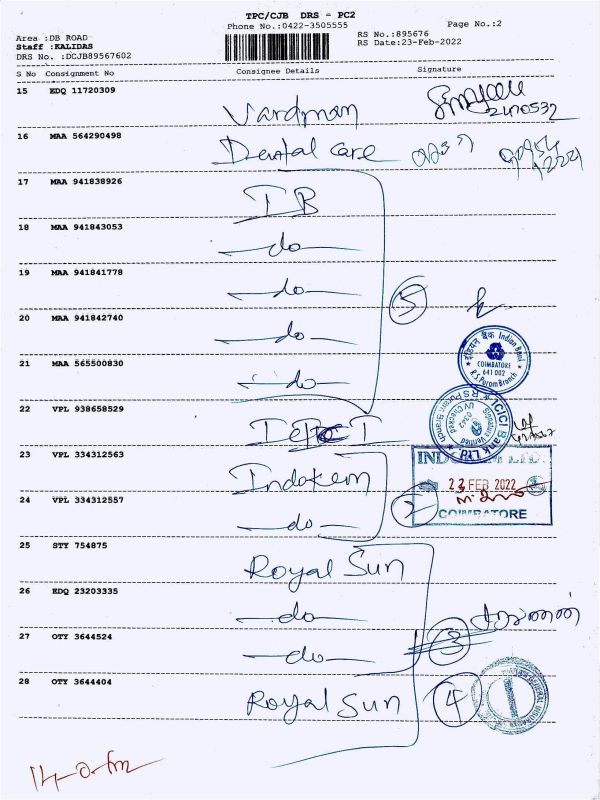 TPC/CJB DRS - PC2
Phone No.:0422-3505555
Page No.:2
Area :DB ROAD
Staff :KALIDAS
DRS No. :DCJB89567602
RS No.:895676
RS Date:23-Feb-2022
S No Consignment No Consignee Details Signature
15 EDQ 11720309 Vardman
16 MAA 564290498 Dental care
17 MAA 941838926 IB
18 MAA 941843053 -do-
19 MAA 941841778 -do-
5
20 MAA 941842740 -do-
इंडियन बैंक Indian Bank
COIMBATORE
641 002
R.S.Puram Branch
21 MAA 565500830 -do-
ICICI Bank Ltd
22 VPL 938658529
23 VPL 334312563 Indokem
23 FEB 2022
COIMBATORE
24 VPL 334312557 -do-
2
25 STY 754875 Royal Sun
26 EDQ 23203335 -do-
27 OTY 3644524 -do-
3 சரவணன்
28 OTY 3644404 Royal Sun
4